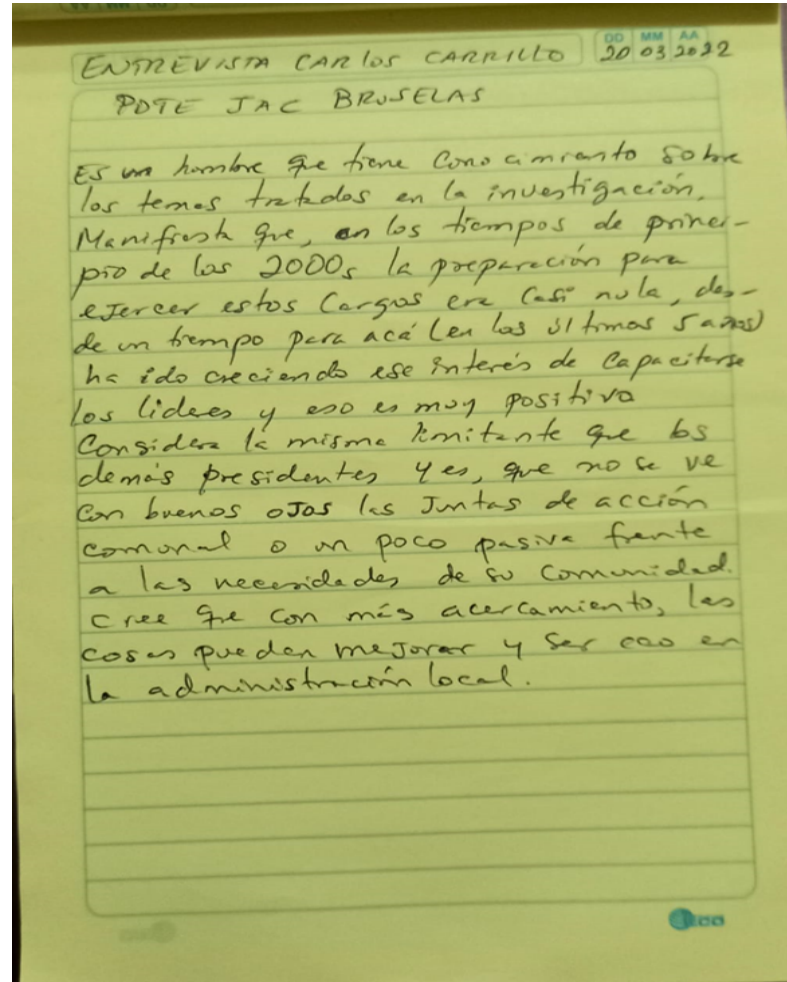 DD MM AA
ENTREVISTA CARLOS CARRILLO 20 03 2022
PDTE JAC BRUSELAS
Es un hombre que tiene conocimiento sobre
los temas tratados en la investigación.
Manifiesta que, en los tiempos de princi-
pio de los 2000s la preparación para
ejercer estos cargos era casi nula, des-
de un tiempo para acá (en los últimos 5 años)
ha ido creciendo ese interés de capacitarse
los lideres y eso es muy positivo
Considera la misma limitante que los
demás presidentes y es, que no se ve
con buenos ojos las Juntas de acción
comunal o un poco pasiva frente
a las necesidades de su comunidad.
cree que con más acercamiento, las
cosas pueden mejorar y ser eco en
la administración local.